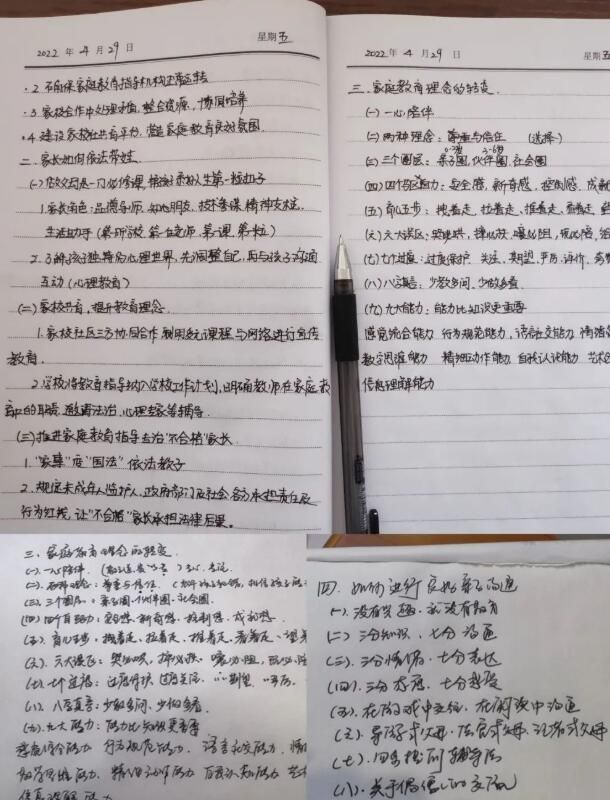 2022年 4月 29日 星期五
·2 不确保家庭教育指导机构正常运转
·3 家校合作中处理矛盾,整合资源,协同培养
·4 建设家校社共育平台,营造家庭教育良好氛围。
二、家长如何依法带娃
(一)做父母是一门必修课 帮孩子系好人生第一粒扣子
1.家长角色:品德导师,知心朋友,精神支柱,
生活助手(第一所学校 第一位老师,第一课,第一粒)
2.了解孩子独特的心理世界,先调整自己,再与孩子沟通
互动(心理教育)
(二)家校共育,提升教育理念
1.家校社区三方协同合作 利用多元课程 与网络进行宣传
教育.
2.学校将教育指导纳入学校工作计划,明确教师在家庭教
育中的职责,邀请法治、心理专家等辅导.
(三)推进家庭教育指导 去治“不合格”家长
1.“家事”变“国法” 依法教子
2.规定未成年人监护人、政府部门及社会各方承担责任及
行为红线,让“不合格”家长承担法律后果。
2022年 4月 29日 星期五
三、家庭教育理念的转变
(一)一心陪伴
(二)两种理念:尊重与信任 (选择)
0-3岁 3-6岁
(三)三个圈层:亲子圈,伙伴圈,社会圈
(四)四个自驱力:安全感,新奇感,控制感,成就
(五)育儿五步:抱着走,拉着走,推着走,看着走,
(六)六大误区:哭必哄,摔必扶,
(七)七个过度:过度保护 关注,期望,平历,评价,
(八)八字真言:少教多问,少做多看
(九)九大能力:能力比知识更重要
感觉统合能力 行为规范能力,语言社交能力 情绪
数学思维能力 精细动作能力 自我认识能力 艺术
信息理解能力
三、家庭教育理念的转变
(一)、一心陪伴.
(二)、两种理念:尊重与信任
(三)、三个圈层:亲子圈·伙伴圈·社会圈
(四)四个自驱力:安全感,新奇感,控制感,成就感.
(五)、育儿五步:抱着走,拉着走,推着走,看着走
(六)、六大误区:哭必哄,摔必扶,
(七)、七个过度:过度保护 过度关注,期望
(八)、八字真言:少教多问,少做多看
(九)、九大能力:能力比知识更重要
感觉统合能力 行为规范能力,语言社交能力,情
数学思维能力 精细动作能力 自我认知能力 艺术
信息理解能力
四、如何进行良好亲子沟通
(一)、没有关系,就没有教育
(二)三分知识、七分沟通
(三)、三分情绪、七分表达
(四)、三分态度、七分接受
(五)、在游戏中交往,在阅读中沟通
(六)、导师式父母、法官式父母、
(七)、
(八)、关于